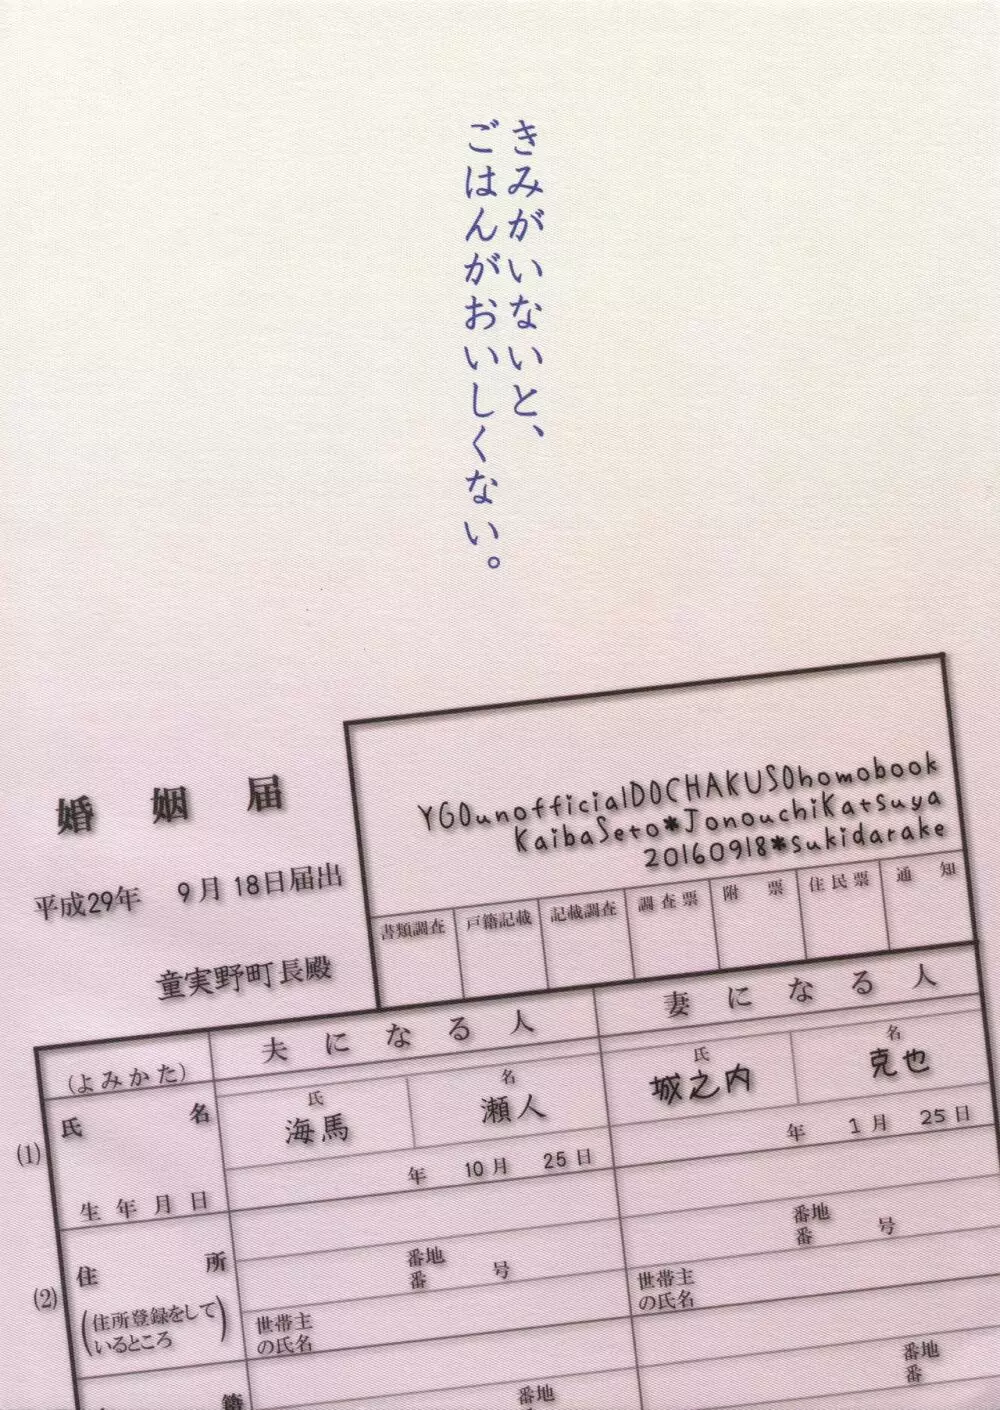 きみがいないと、
ごはんがおいしくない。
YGOunofficialDOCHAKUSOhomobook
KaibaSeto*JonouchiKatsuya
20160918*sukidarake
婚姻届
平成29年 9月18日届出
童実野町長殿
書類調査 戸籍記載 記載調査 調査票 附票 住民票 通知
夫になる人 妻になる人
(よみかた)
(1)
氏名
氏 名 氏 名
海馬 瀬人 城之内 克也
生年月日
年 10月 25日 年 1月 25日
(2)
住所
(住所登録をして
いるところ)
番地
番 号
番地
番 号
世帯主
の氏名
世帯主
の氏名
籍
番地
番地
番